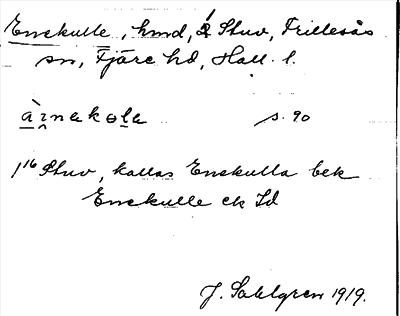 Enskulle, hmd, å Stuv, Frillesås
sn, Fjäre hd, Hall. l.
s. 90
1/16 Stuv, kallas Enskulla bek
Enskulle ek Id
J. Sahlgren 1919.